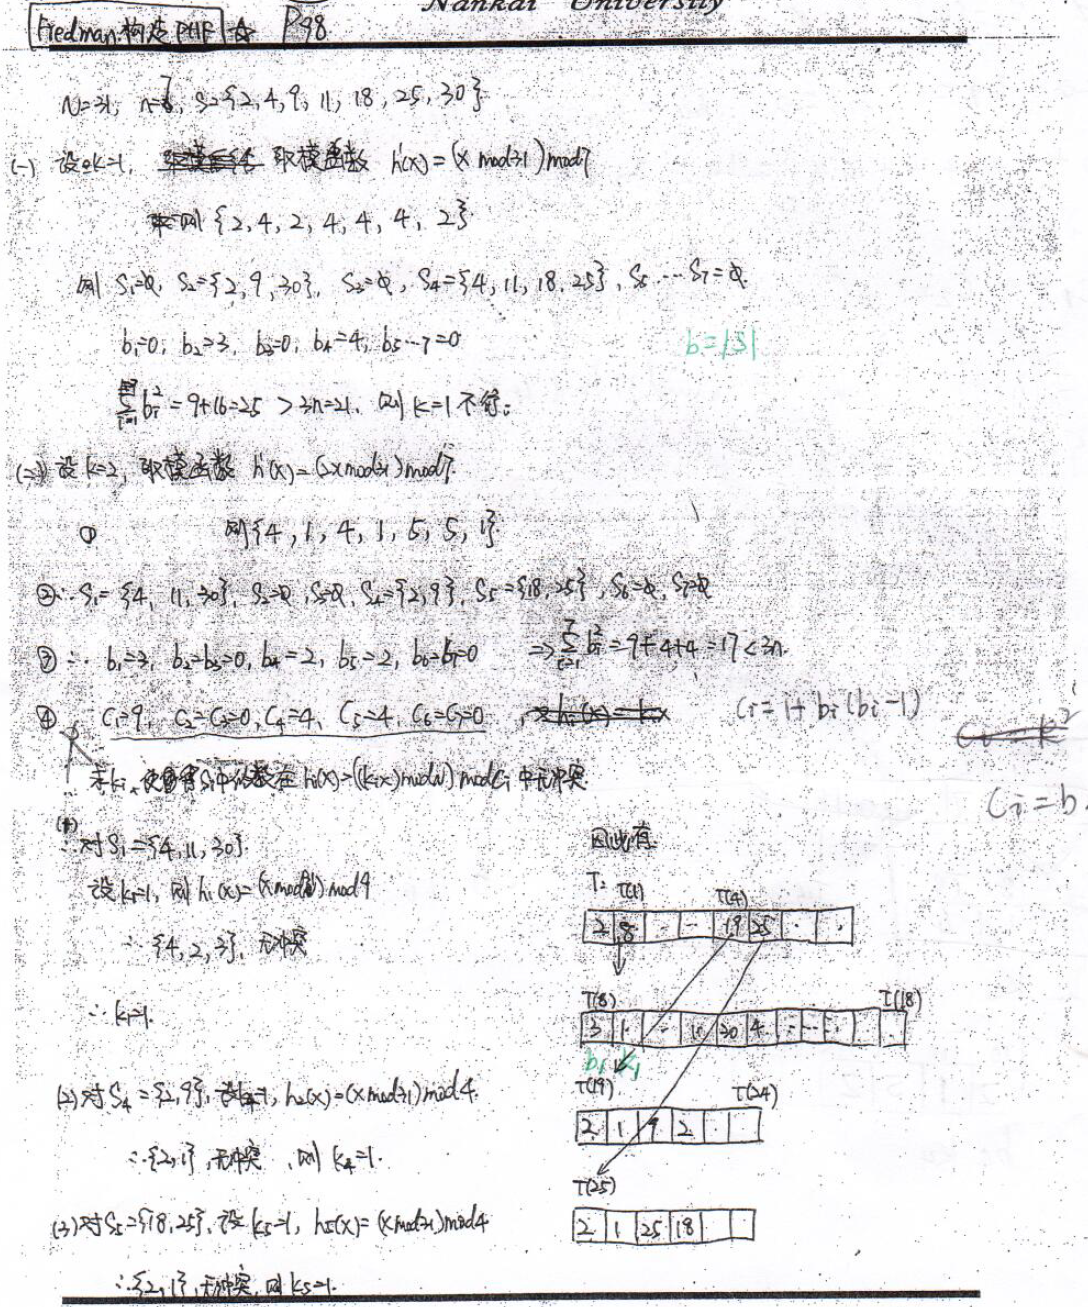 Nankai University
Fredman构造PHF ☆ P98
N=31, n=7, S={2,4,9,11,18,25,30}
(一) 设k=1, 取模函数 h'(x)=(x mod31)mod7
则{2,4,2,4,4,4,2}
则 S₁=∅, S₂={2,9,30}, S₃=∅, S₄={4,11,18,25}, S₅…S₇=∅
b₁=0, b₂=3, b₃=0, b₄=4, b₅…₇=0
b=|S|
Σbᵢ²=9+16=25>3n=21, 则k=1不行。
(二) 设k=2, 取模函数 h'(x)=(2x mod31)mod7.
① 则{4,1,4,1,5,5,1}
②∴S₁={4,11,30}, S₂=∅, S₃=∅, S₄={2,9}, S₅={18,25}, S₆=∅, S₇=∅
③∴ b₁=3, b₂=b₃=0, b₄=2, b₅=2, b₆=b₇=0 ⇒Σbᵢ²=9+4+4=17<3n.
④ C₁=9, C₂=C₃=0, C₄=4, C₅=4, C₆=C₇=0
Cᵢ=1+bᵢ(bᵢ-1)
Cᵢ=b
求kᵢ, 使Sᵢ中的数在hᵢ(x)=((kᵢx)modN)modCᵢ中无冲突
(1)
∴对S₁={4,11,30}
设k₁=1, 则h₁(x)=(x mod31)mod9
∴{4,2,3}, 无冲突
∴k₁=1.
(2)对S₄={2,9}, 设k₄=1, h₂(x)=(x mod31)mod4.
∴{2,1}, 无冲突, 则k₄=1.
(3)对S₅={18,25}, 设k₅=1, h₅(x)=(x mod31)mod4
∴{2,1}, 无冲突, 则k₅=1.
因此有
T: T(1) T(4)
2 8 - - 19 25 · ·
T(8) T(18)
3 1 - 11 30 4 - - -
b₁ k₁
T(19) T(24)
2 1 9 2
T(25)
2 1 25 18